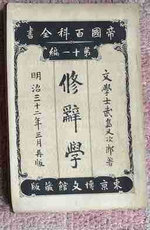 帝國百科全書
第十一編
文學士武島又次郎著
修辭學
明治三十二年三月再版
東京博文館蔵版